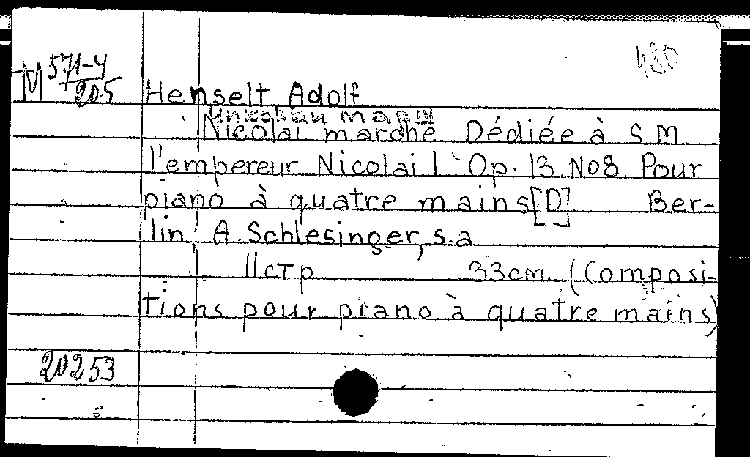 430
M 571-4/205
Henselt, Adolf
Nicolai marche Dédiée à S. M.
l'empereur Nicolai I Op. 13 No8 Pour
piano à quatre mains [D] Ber-
lin, A. Schlesinger, s.a
11 стр 33cm. (Composi-
tions pour piano à quatre mains)
20253